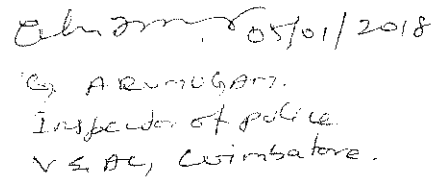 05/01/2018
G ARUMUGAM.
Inspector of police.
V & AC, Coimbatore.